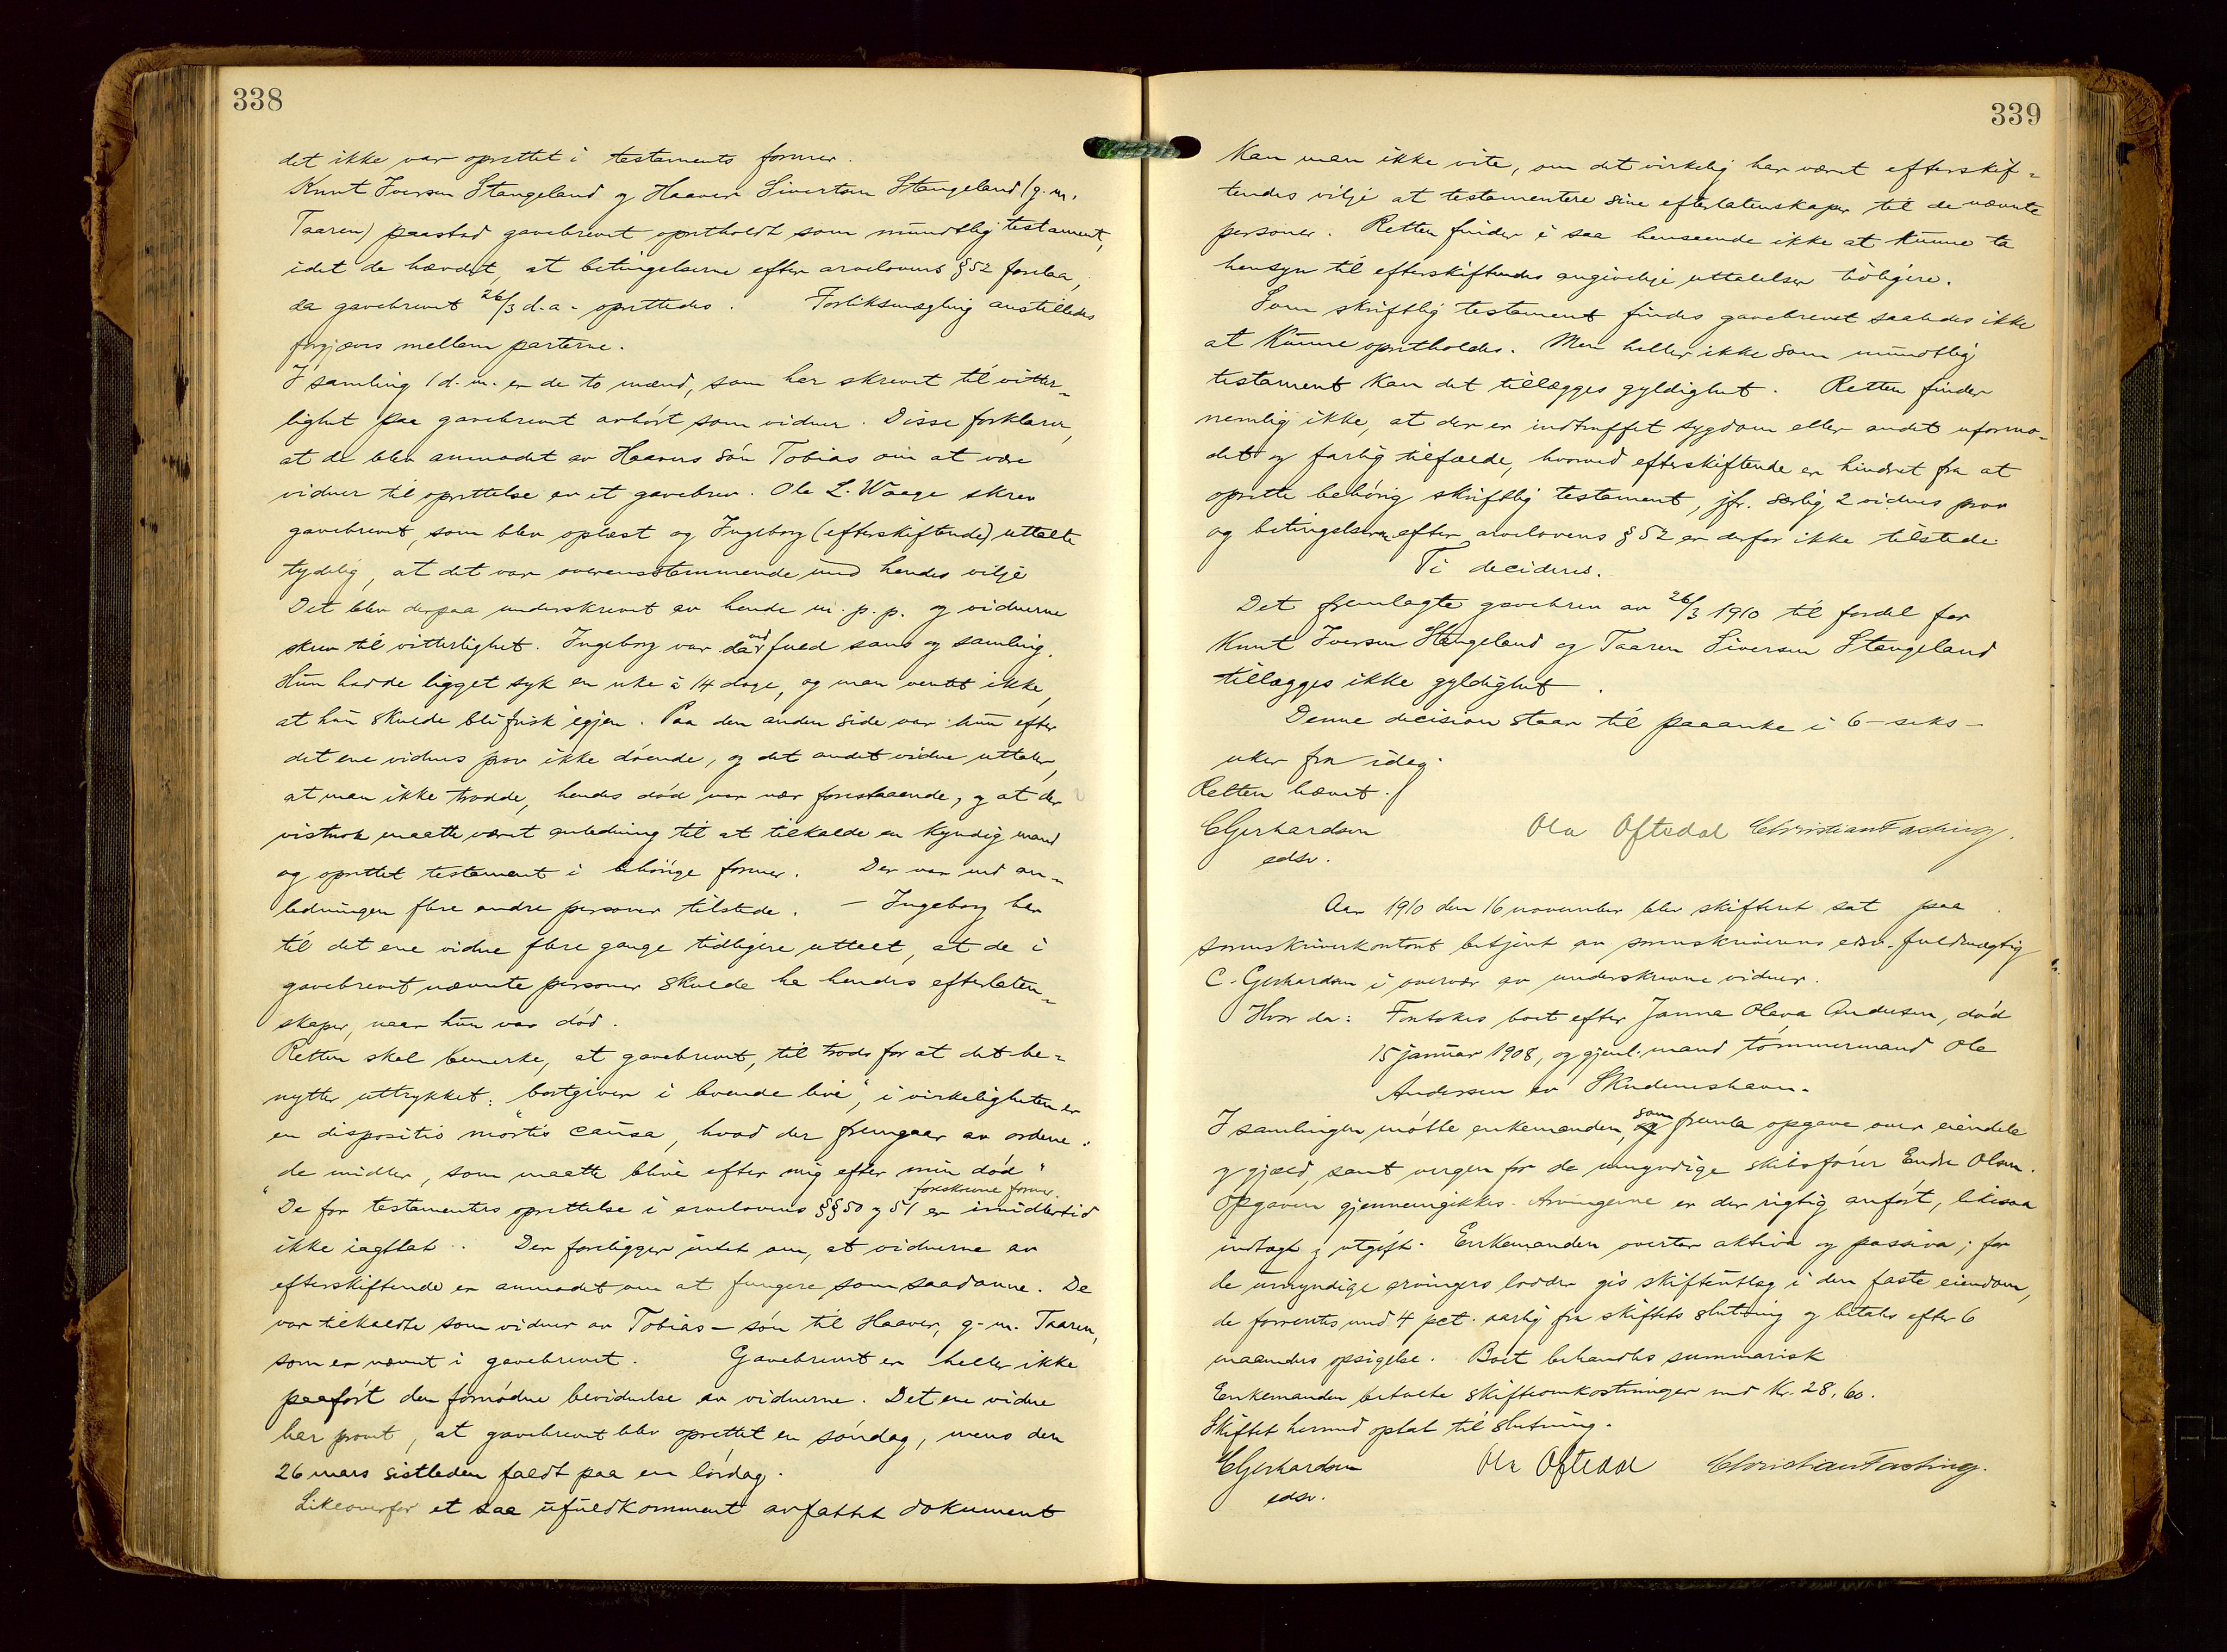 338
det ikke var oprettet i testaments former.
Knut Iversen Stangeland og Haaver Sivertsen Stangeland (g. m.
Taaren) paastod gavebrevet opretholdt som mundtlig testament,
idet de hævdet, at betingelserne efter arvelovens § 52 forelaa,
da gavebrevet 26/3 d. a. oprettedes. Forliksmægling anstilledes
forgjæves mellem parterne.
I samling 1 d. m. er de to mænd, som har skrevet til vitter-
lighet paa gavebrevet avhørt som vidner. Disse forklarer,
at de blev anmodet av Haavers søn Tobias om at være
vidner til oprettelse av et gavebrev. Ole L. Waage skrev
gavebrevet, som blev oplæst og Ingeborg (efterskiftende) uttalte
tydelig, at det var overensstemmende med hendes vilje
Det blev derpaa underskrevet av hende m. p. p. og vidnerne
skrev til vitterlighet. Ingeborg var da ved fuld sans og samling.
Hun hadde ligget syk en uke à 14 dage, og man ventet ikke,
at hun skulde bli frisk igjen. Paa den anden side var hun efter
det ene vidnes prov ikke døende, og det andet vidne uttaler,
at man ikke trodde, hendes død var nær forestaaende, og at der
vistnok maatte været anledning til at tilkalde en kyndig mand
og oprettet testament i behörige former. Der var ved an-
ledningen flere andre personer tilstede. – Ingeborg har
til det ene vidne flere gange tidligere uttalt, at de i
gavebrevet nævnte personer skulde ha hendes efterlaten-
skaper, naar hun var død.
Retten skal bemerke, at gavebrevet, til trods for at det be-
nytter uttrykket: "bortgiver i levende live", i virkeligheten er
en dispositio mortis causa, hvad der fremgaar av ordene:
"de midler, som maatte blive efter mig efter min død"
foreskrevne former
De for testamentes oprettelse i arvelovens §§ 50 og 51 er imidlertid
ikke iagttat. Der foreligger intet om, at vidnerne av
efterskiftende er anmodet om at fungere som saadanne. De
var tilkaldte som vidner av Tobias – søn til Haaver, g. m. Taaren,
som er nævnt i gavebrevet. Gavebrevet er heller ikke
paaført den fornødne bevidnelse av vidnerne. Det ene vidne
har provet, at gavebrevet blev oprettet en søndag, mens den
26 mars sistleden faldt paa en lørdag.
Likeoverfor et saa ufuldkomment avfattet dokument
339
kan man ikke vite, om det virkelig har været efterskif-
tendes vilje at testamentere sine efterlatenskaper til de nævnte
personer. Retten finder i saa henseende ikke at kunne ta
hensyn til efterskiftendes angivelige uttalelser tidligere.
Som skriftlig testament findes gavebrevet saaledes ikke
at kunne opretholdes. Men heller ikke som mundtlig
testament kan det tillægges gyldighet. Retten finder
nemlig ikke, at der er indtruffet sygdom eller andet uformo-
det og farlig tilfælde, hvorved efterskiftende er hindret fra at
oprette behörig skriftlig testament, jfr. særlig 2 vidnes prov
og betingelserne efter arvelovens § 52 er derfor ikke tilstede.
Ti decideres.
Det fremlagte gavebrev av 26/3 1910 til fordel for
Knut Iversen Stangeland og Taaren Siversen Stangeland
tillægges ikke gyldighet.
Denne decision staar til paaanke i 6 – seks –
uker fra idag.
Retten hævet.
C Gerhardsen Ola Oftedal Christian Fasting.
edsv.
Aar 1910 den 16 november blev skifteret sat paa
sorenskriverkontoret betjent av sorenskriverens edsv. fuldmægtig
C. Gerhardsen i overvær av underskrevne vidner.
Hvor da: Foretokes boet efter Janna Olava Andersen, død
15 januar 1908, og gjenl. mand tømmermand Ole
Andersen av Skudeneshavn.
I samlingen møtte enkemanden, som fremla opgave over eiendele
og gjæld, samt vergen for de umyndige skibsfører Endre Olsen.
Opgaven gjennemgikkes. Arvingerne er der rigtig anført, likesaa
indtægt og utgift. Enkemanden overtar aktiva og passiva; for
de umyndige arvingers lodder gis skifteutlæg i den faste eiendom,
de forrentes med 4 pct. aarlig fra skiftets slutning og betales efter 6
maaneders opsigelse. Boet behandles summarisk
Enkemanden betalte skifteomkostninger med Kr. 28,60.
Skiftet hermed optat til slutning.
C Gerhardsen Ola Oftedal Christian Fasting.
edsv.